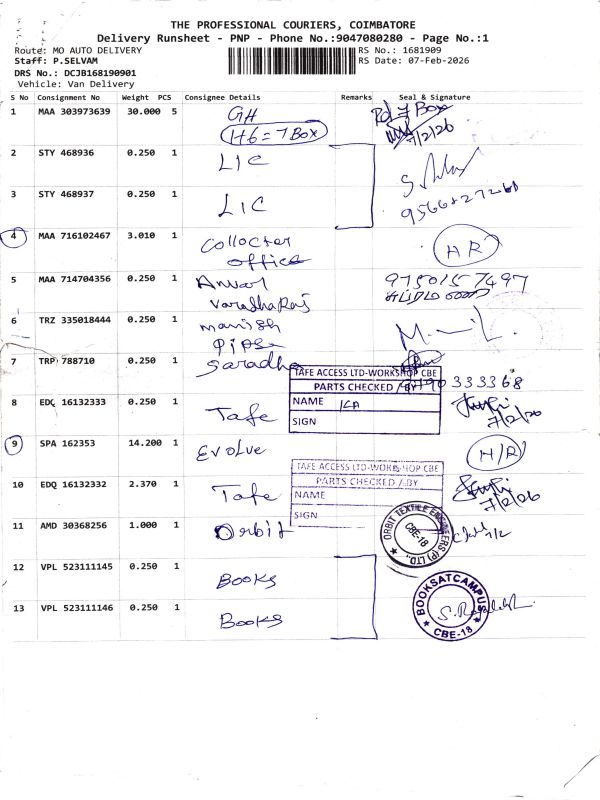 THE PROFESSIONAL COURIERS, COIMBATORE
Delivery Runsheet - PNP - Phone No.:9047080280 - Page No.:1
Route: MO AUTO DELIVERY RS No.: 1681909
Staff: P.SELVAM RS Date: 07-Feb-2026
DRS No.: DCJB168190901
Vehicle: Van Delivery
S No Consignment No Weight PCS Consignee Details Remarks Seal & Signature
1 MAA 303973639 30.000 5 GH 7 Box
H6 = 7 Box 7/2/26
2 STY 468936 0.250 1 LIC
3 STY 468937 0.250 1 LIC
4 MAA 716102467 3.010 1 Collocter HR
office
5 MAA 714704356 0.250 1 Anwar 9750157497
VaradhaRaj
6 TRZ 335018444 0.250 1 manish
pipe
7 TRP 788710 0.250 1 Saradha
TAFE ACCESS LTD-WORKSHOP CBE
PARTS CHECKED / BY 90 333368
8 EDQ 16132333 0.250 1 Tafe NAME
SIGN 7/2/26
9 SPA 162353 14.200 1 Evolve H/R
TAFE ACCESS LTD-WORKSHOP CBE
PARTS CHECKED / BY
10 EDQ 16132332 2.370 1 Tafe NAME
SIGN 7/2/26
11 AMD 30368256 1.000 1 Orbit ORBIT TEXTILE ENGINEERS (P) LTD., CBE-18 7/2
12 VPL 523111145 0.250 1 Books
13 VPL 523111146 0.250 1 Books BOOKSATCAMPUS CBE-18